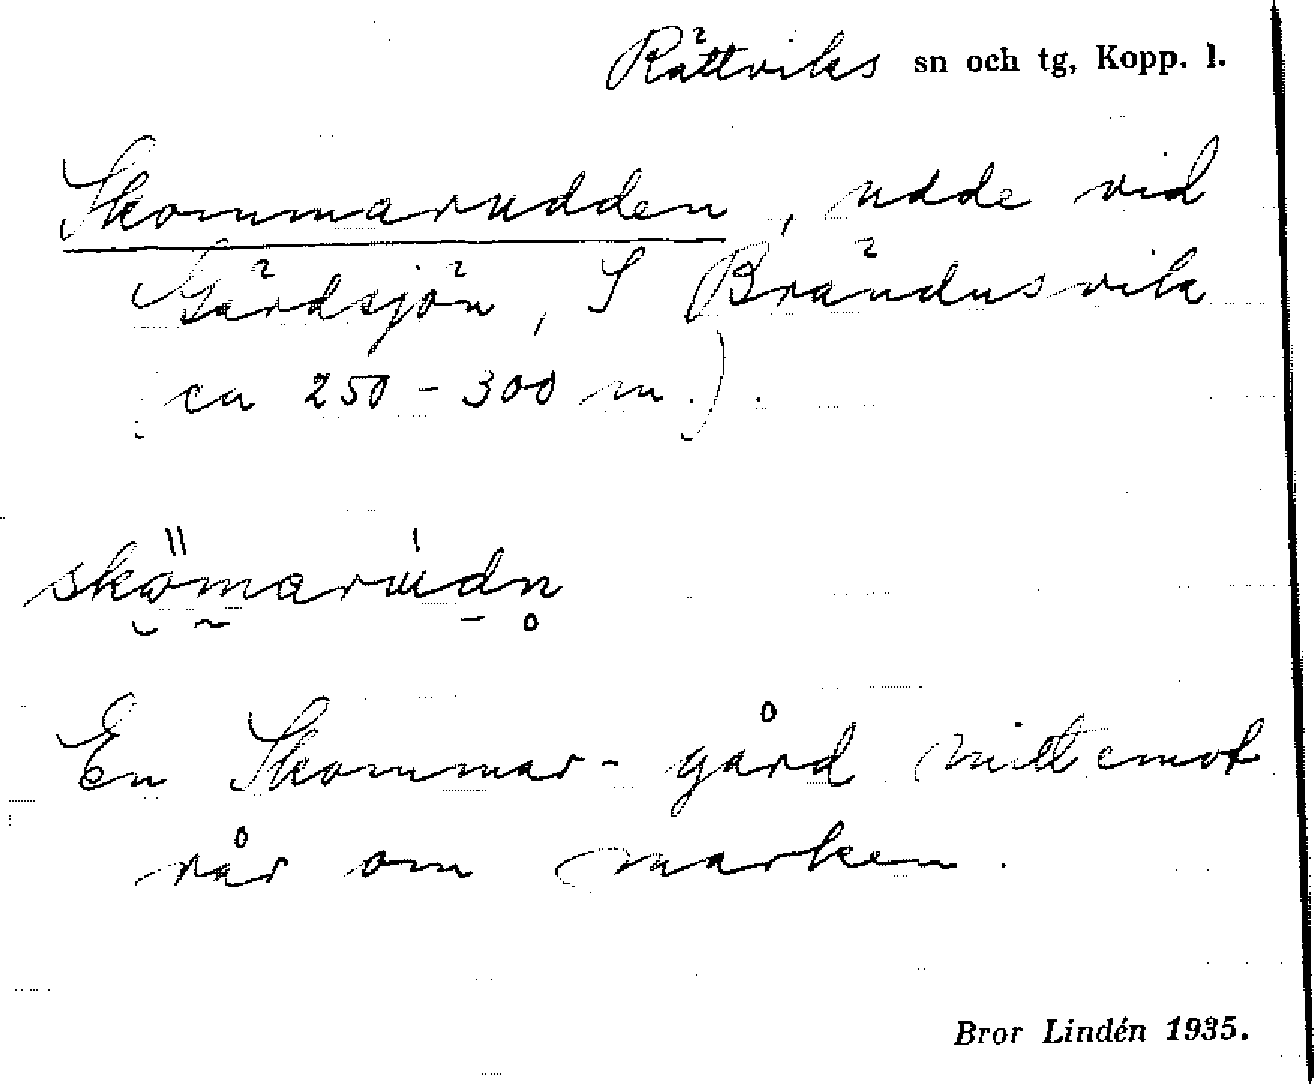 Rättviks sn och tg, Kopp. l.
Skommarudden, udde vid
Gärdsjön, S Brändusvik
ca 250-300 m.).
skömarùdn
En Skommar-gård mittemot
rår om marken.
Bror Lindén 1935.